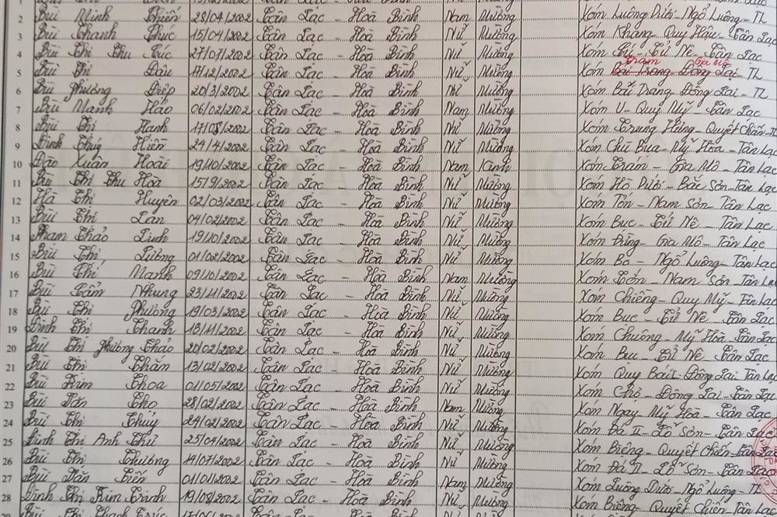 2 Bùi Minh Chiến 28/04/2002 Tân Lạc - Hoà Bình Nam Mường Xóm Luông Dưới - Ngổ Luông - TL
3 Bùi Thanh Thúc 15/04/2002 Tân Lạc - Hoà Bình Nữ Mường Xóm Khang Quy Hậu - Tân Lạc
4 Bùi Thị Thu Cúc 27/01/2002 Tân Lạc - Hoà Bình Nữ Mường Xóm Tử Nê - Tân Lạc
5 Bùi Thị Dậu 14/12/2002 Tân Lạc - Hoà Bình Nữ Mường Xóm Bái Trang Đông Lai - TL
6 Bùi Phương Điệp 20/3/2002 Tân Lạc - Hoà Bình Nữ Mường Xóm Bái Trang Đông Lai - TL
7 Bùi Mạnh Hảo 06/02/2002 Tân Lạc - Hoà Bình Nam Mường Xóm U - Quy Mỹ - Tân Lạc
8 Bùi Thị Hạnh 17/08/2002 Tân Lạc - Hoà Bình Nữ Mường Xóm Trung Hùng - Quyết Chiến - TL
9 Đinh Thuý Hiền 24/4/2002 Tân Lạc - Hoà Bình Nữ Mường Xóm Chù Bụa - Mỹ Hoà - Tân Lạc
10 Đào Xuân Hoài 19/10/2002 Tân Lạc - Hoà Bình Nam Kinh Xóm Trám - Gia Mô - Tân Lạc
11 Bùi Thị Thu Hoà 15/9/2002 Tân Lạc - Hoà Bình Nữ Mường Xóm Hò Dưới - Bắc Sơn - Tân Lạc
12 Hà Thị Huyền 02/03/2002 Tân Lạc - Hoà Bình Nữ Mường Xóm Tớn - Nam Sơn - Tân Lạc
13 Bùi Thị Lan 04/02/2002 Tân Lạc - Hoà Bình Nữ Mường Xóm Bục - Tử Nê - Tân Lạc
14 Phạm Thảo Linh 19/10/2002 Tân Lạc - Hoà Bình Nữ Mường Xóm - Gia Mô - Tân Lạc
15 Bùi Thị Lường 01/02/2002 Tân Lạc - Hoà Bình Nữ Mường Xóm Bo - Ngổ Luông - Tân Lạc
16 Bùi Thị Mạnh 09/10/2002 Tân Lạc - Hoà Bình Nam Mường Xóm Tớn - Nam Sơn - Tân Lạc
17 Bùi Cẩm Nhung 23/11/2002 Tân Lạc - Hoà Bình Nữ Mường Xóm Chiềng - Quy Mỹ - Tân Lạc
18 Bùi Thị Phương 19/03/2002 Tân Lạc - Hoà Bình Nữ Mường Xóm Bục - Tử Nê - Tân Lạc
19 Đinh Thị Thanh 18/11/2002 Tân Lạc - Hoà Bình Nữ Mường Xóm Chuông - Mỹ Hoà - Tân Lạc
20 Bùi Thị Phương Thảo 20/02/2002 Tân Lạc - Hoà Bình Nữ Mường Xóm Bục - Tử Nê - Tân Lạc
21 Bùi Thị Thắm 13/02/2002 Tân Lạc - Hoà Bình Nữ Mường Xóm Quy Đông Lai Tân Lạc
22 Bùi Kim Thoa 01/05/2002 Tân Lạc - Hoà Bình Nữ Mường Xóm Chò - Đông Lai - Tân Lạc
23 Bùi Văn Thọ 28/02/2002 Tân Lạc - Hoà Bình Nam Mường Xóm Ngay - Mỹ Hoà - Tân Lạc
24 Bùi Thị Thuỷ 24/02/2002 Tân Lạc - Hoà Bình Nữ Mường Xóm Đá II - Lỗ Sơn - Tân Lạc
25 Đinh Thị Anh Thư 25/04/2002 Tân Lạc - Hoà Bình Nữ Mường Xóm Biêng - Quyết Chiến - Tân Lạc
26 Bùi Thị Thương 14/07/2002 Tân Lạc - Hoà Bình Nữ Mường Xóm Đá II - Lỗ Sơn - Tân Lạc
27 Bùi Văn Tiến 01/01/2002 Tân Lạc - Hoà Bình Nam Mường Xóm Luông Dưới - Ngổ Luông - TL
28 Đinh Thị Kim Trinh 19/09/2002 Tân Lạc - Hoà Bình Nữ Mường Xóm Biêng - Quyết Chiến - Tân Lạc